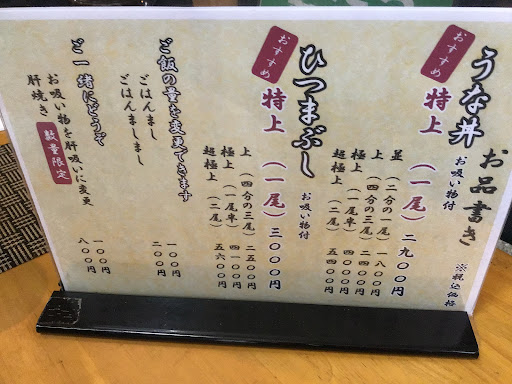 お品書き ※税込価格
うな丼 お吸い物付
おすすめ 特上 (一尾) 二九〇〇円
並 (二分の一尾) 一八〇〇円
上 (四分の三尾) 二四〇〇円
極上 (一尾半) 三九〇〇円
超極上 (二尾) 五四〇〇円
ひつまぶし お吸い物付
おすすめ 特上 (一尾) 三〇〇〇円
上 (四分の三尾) 二五〇〇円
極上 (一尾半) 四一〇〇円
超極上 (二尾) 五六〇〇円
ご飯の量を変更できます
ごはんまし 一〇〇円
ごはんましまし 二〇〇円
ご一緒にどうぞ
お吸い物を肝吸いに変更 一〇〇円
肝焼き 数量限定 八〇〇円